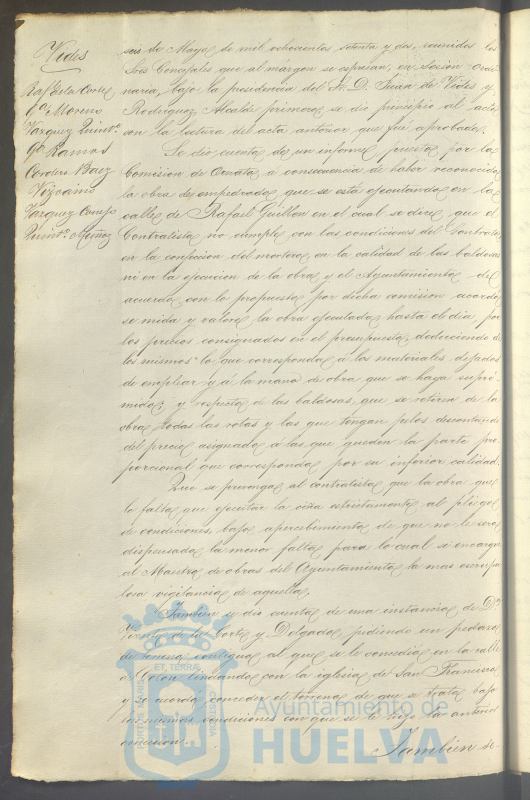 Vides
Raf. de la Corte
Ga. Moreno
Vazquez Quinto.
Go. Ramos
Cordero Baez
Vizcaino
Vazquez Comejo
Quinto. Muñoz
seis de Mayo de mil ochocientos setenta y dos, reunidos los
Sres Concejales que al márgen se espresan, en sesion ordi-
naria, bajo la presidencia del Sr. D. Juan de Vides y
Rodriguez, Alcalde primero, se dió principio al acto
con la lectura del acta anterior que fué aprobada.
Se dió cuenta de un informe puesto por la
Comision de Ornato á consecuencia de haber reconocido
la obra de empedrado que se está ejecutando en la
calle de Rafael Guillen en el cual se dice que el
Contratista no cumple con las condiciones del Contrato
en la confeccion del mortero, en la calidad de las baldosas
ni en la ejecucion de la obra y el Ayuntamiento de
acuerdo con lo propuesto por dicha comision acordó
se mida y valore la obra ejecutada hasta el dia por
los precios consignados en el presupuesto, deduciendo de
los mismos lo que corresponda á los materiales dejados
de emplear y á la mano de obra que se haya supri-
mido; y respecto de las baldosas, que se retiren de la
obra todas las rotas y las que tengan pelos descontando
del precio asignado á las que queden la parte pro-
porcional que corresponda por su inferior calidad.
Que se prevenga al contratista que la obra que
le falta que ejecutar la ciña estrictamente al pliego
de condiciones, bajo apercibimiento de que no le será
dispensada la menor falta para lo cual se encarga
al Maestro de obras del Ayuntamiento la mas escrupu-
losa vigilancia de aquella.
Tambien se dió cuenta de una instancia de Dn.
de la Corte y Delgado, pidiendo un pedazo
de terreno contiguo al que se le concedió en la calle
de Colon lindando con la iglesia de San Francisco
y se acordó conceder el terreno de que se trata bajo
las mismas condiciones con que se le hizo la anterior
concesion.
Tambien se
ET TERRÆ
Ayuntamiento de
HUELVA